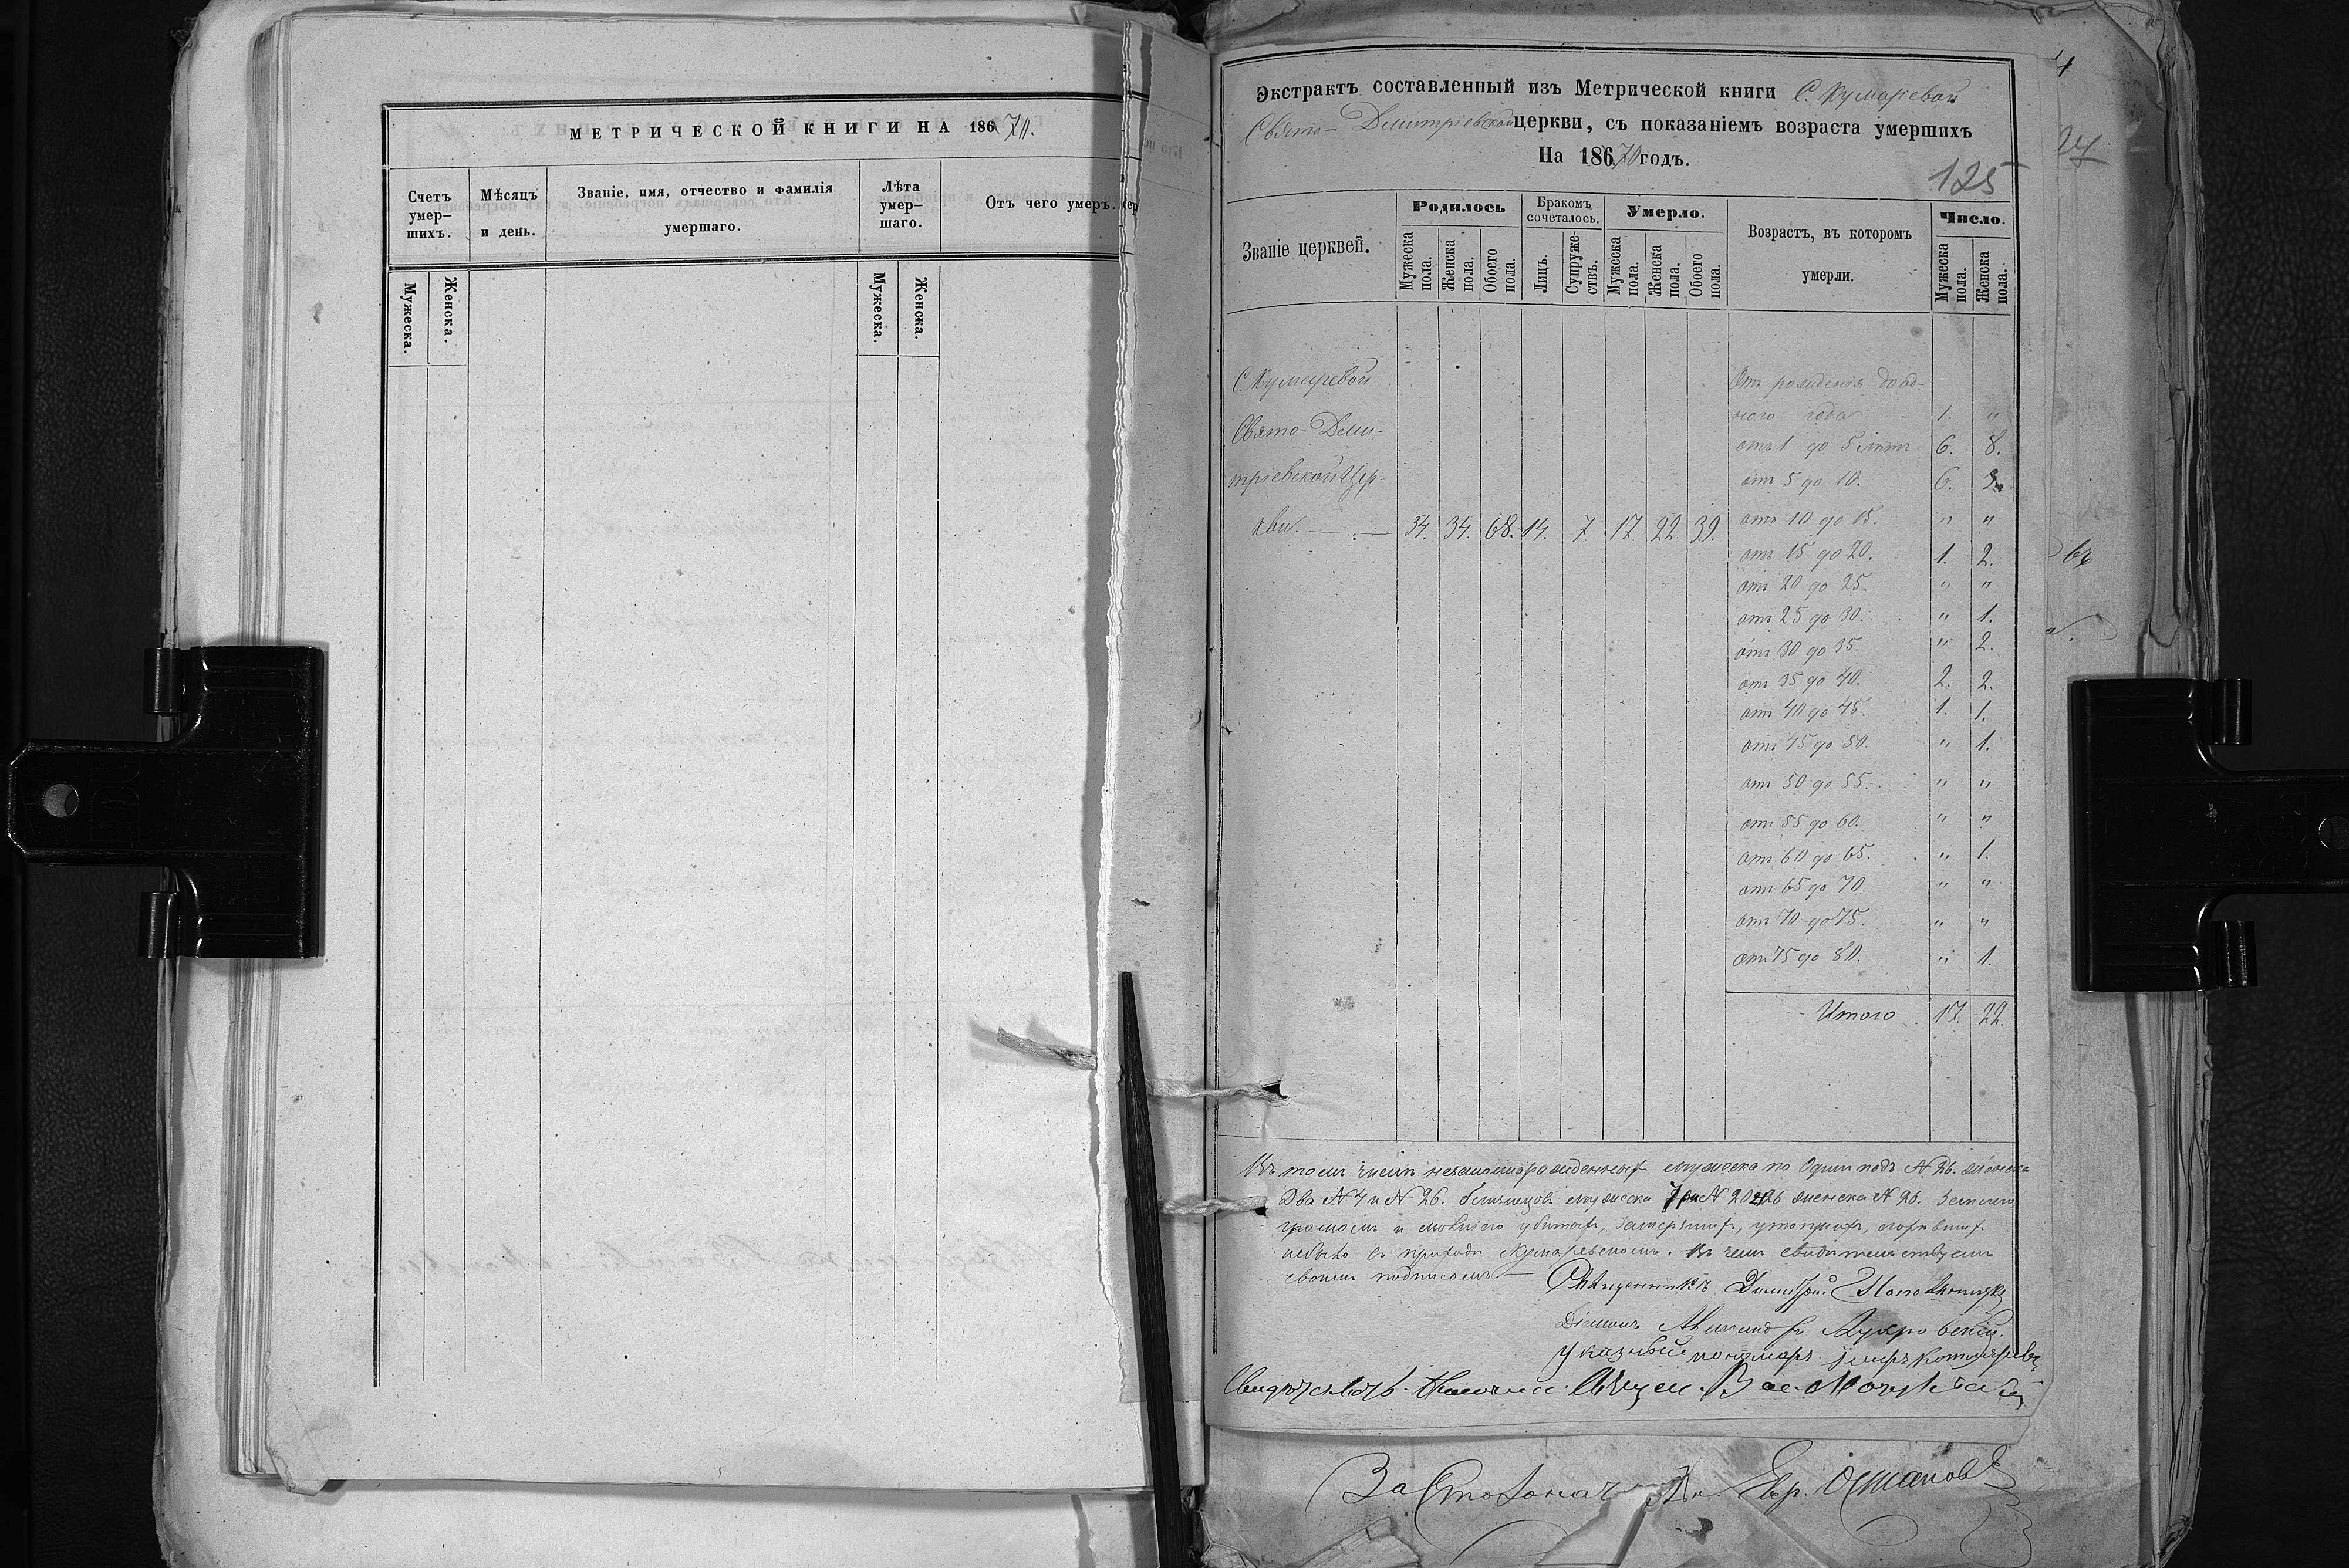 МЕТРИЧЕСКОЙ КНИГИ НА 18670.
Счетъ умер-шихъ.
Мѣсяцъ и день.
Званіе, имя, отчество и фамилія умершаго.
Лѣта умер-шаго.
Отъ чего умеръ.
Мужеска.
Женска.
Мужеска.
Женска.
Экстрактъ составленный изъ Метрической книги С. Кумаревой
Свято-Димитріевской церкви, съ показаніемъ возраста умершихъ
На 18670 годъ.
125
Званіе церквей.
Родилось
Мужеска пола.
Женска пола.
Обоего пола.
Бракомъ сочеталось.
Лицъ.
Супруже-ствъ.
Умерло.
Мужеска пола.
Женска пола.
Обоего пола.
Возрастъ, въ которомъ умерли.
Число.
Мужеска пола.
Женска пола.
С. Кумаревой
Свято-Дми-
тріевской Цер-
кви. 34. 34. 68. 14. 7. 17. 22. 39.
Отъ рожденія до од-
ного года 1. "
отъ 1 до 5 лѣтъ 6. 8.
отъ 5 до 10. 6. 3.
отъ 10 до 15. " "
отъ 15 до 20. 1. 2.
отъ 20 до 25. " "
отъ 25 до 30. " 1.
отъ 30 до 35. " 2.
отъ 35 до 40. 2. 2.
отъ 40 до 45. 1. 1.
отъ 45 до 50. " 1.
отъ 50 до 55. " "
отъ 55 до 60. " "
отъ 60 до 65. " 1.
отъ 65 до 70. " "
отъ 70 до 75. " "
отъ 75 до 80. " 1.
Итого 17. 22.
Въ томъ числѣ незаконнорожденныхъ мужеска по Одинъ подъ N 26. женска
Два N 4 и N 26. близнецовъ мужеска N 20 женска N 26.
громомъ и молніею убитыхъ, замерзшихъ, утопшихъ, сгорѣвшихъ
небыло въ приходѣ Кумаревскомъ. Въ чемъ свидѣтельствуемъ
своимъ подписомъ.
Священникъ Димитрій
Діаконъ Александръ
Указный пономарь
За Столонач. Евр. Османовъ